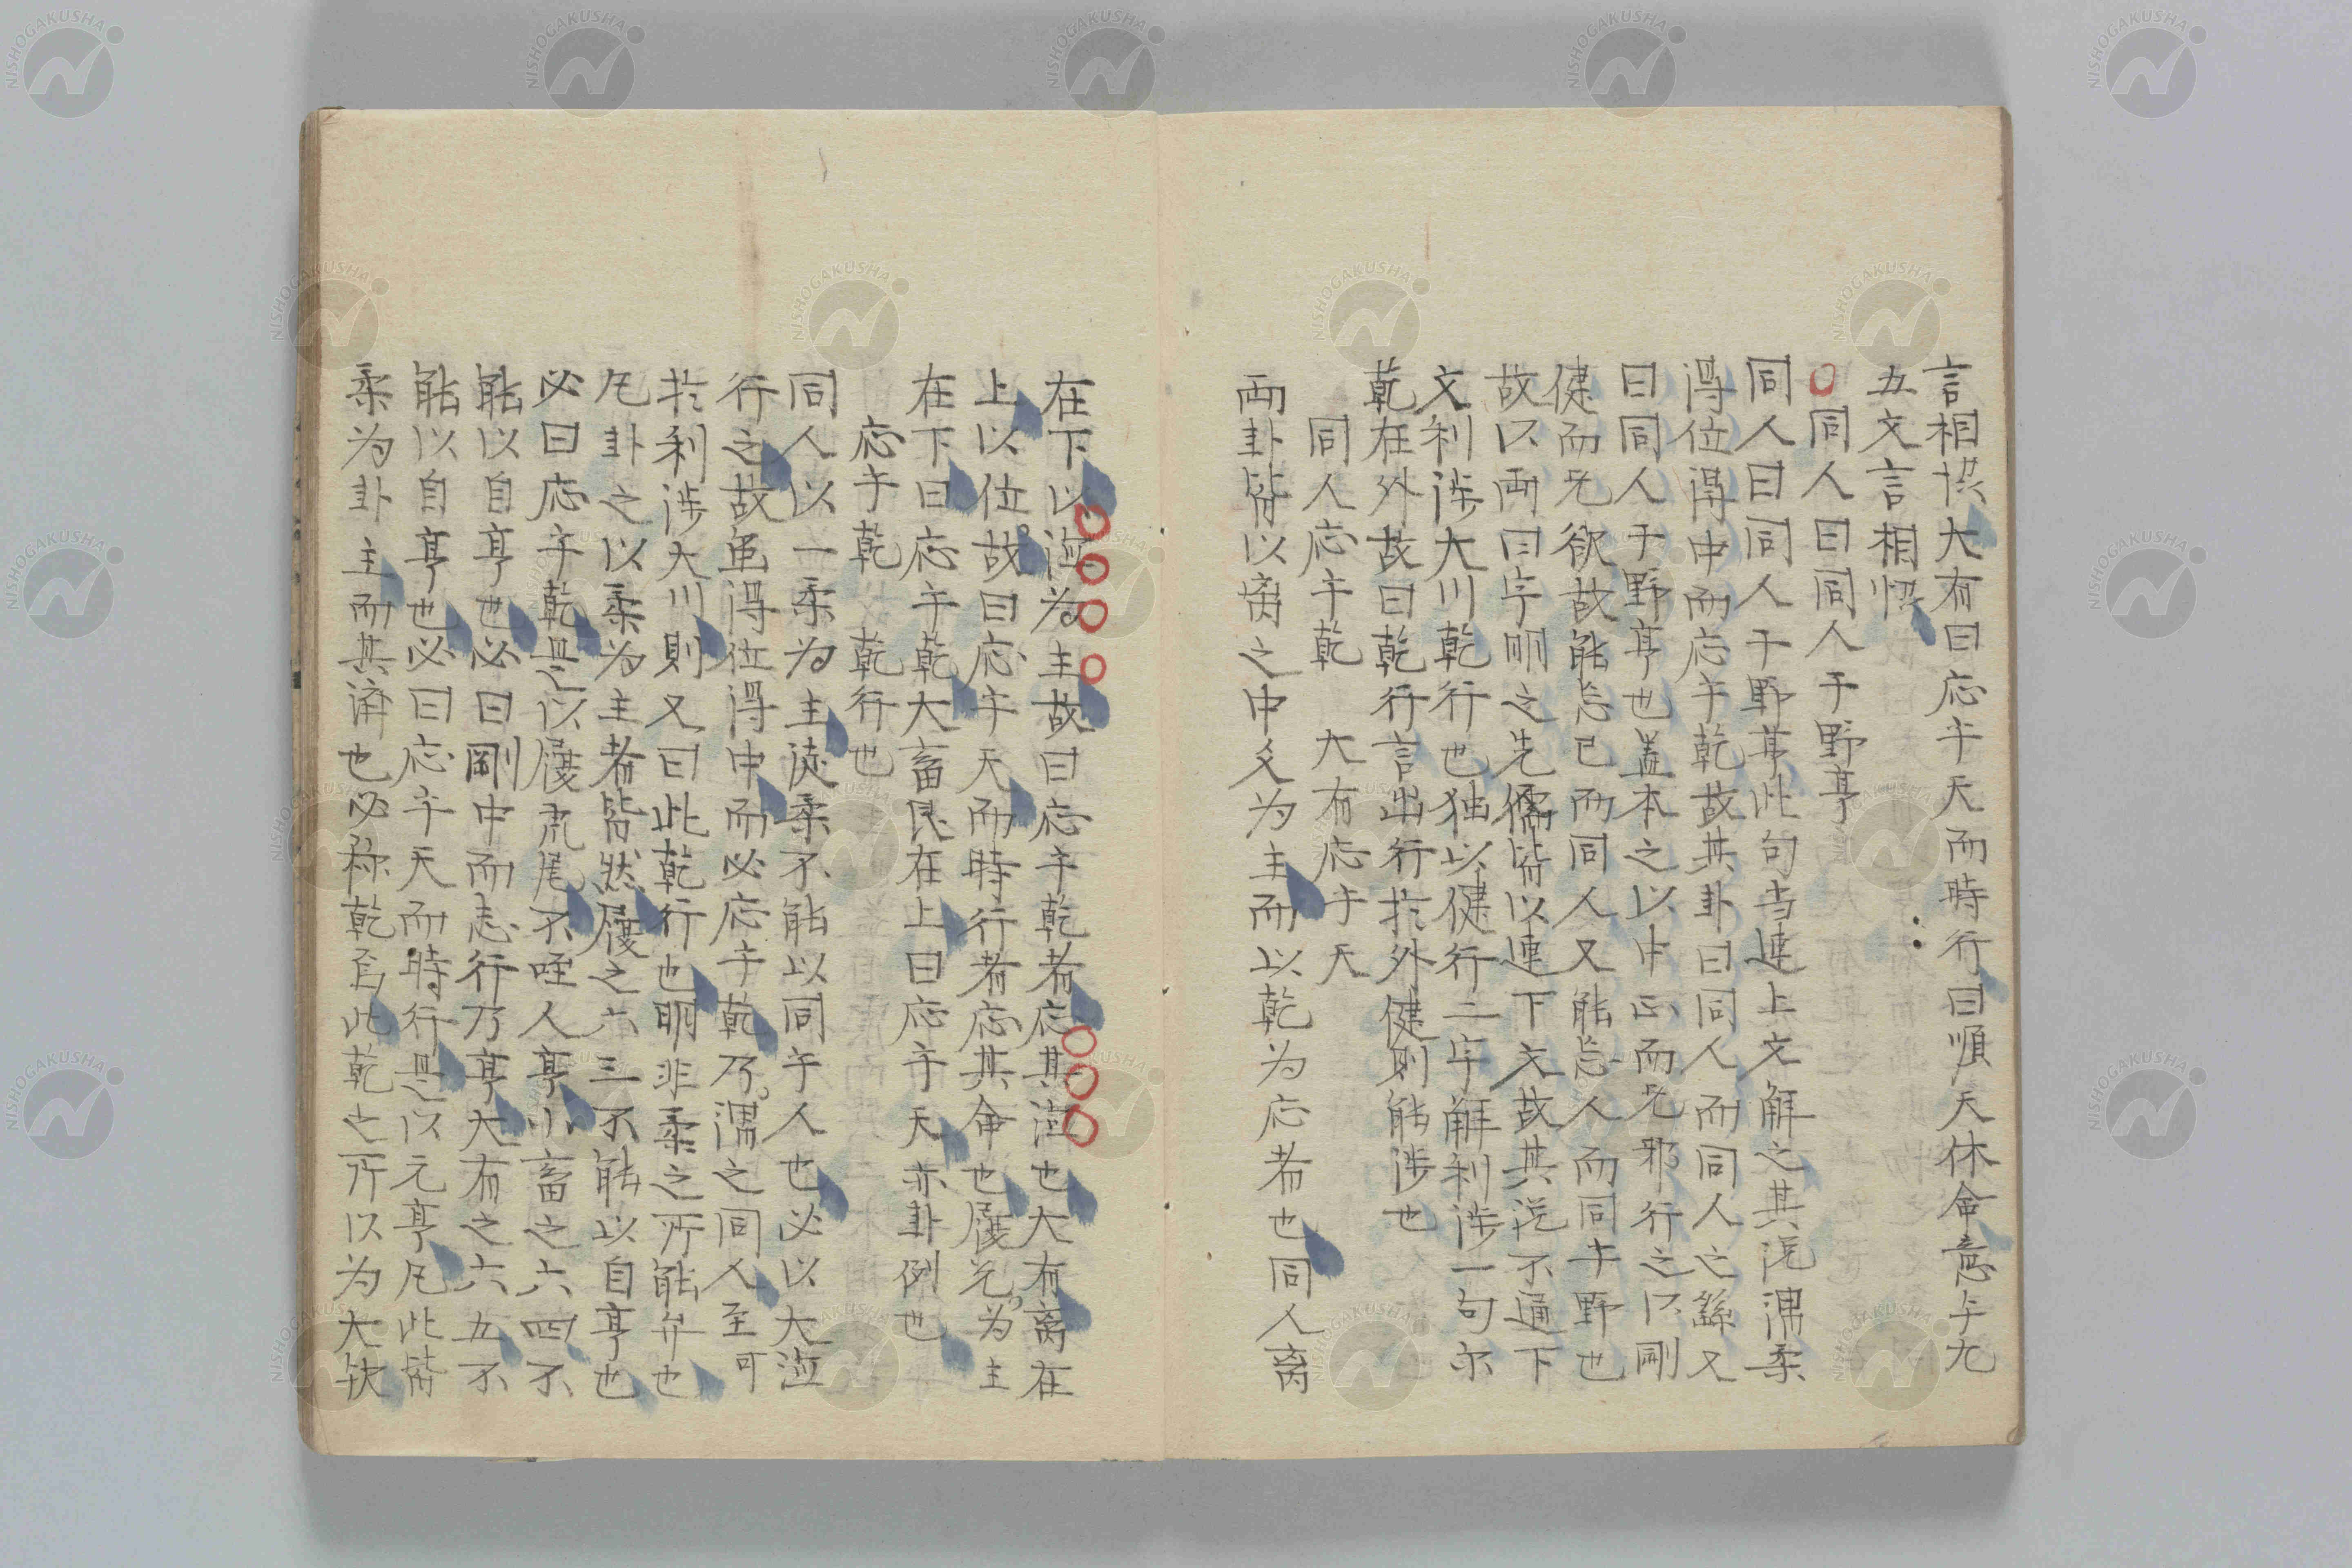 言相恊大有曰应乎天而時行曰順天休命意与九
五文言相恊
○同人曰同人于野亨
同人曰同人于野亨此句当連上文解之其説謂柔
得位得中而应乎乾故其卦曰同人而同人之繇又
曰同人于野亨也盖本之以中正而无邪行之以剛
健而无欲故能忘己而同人又能忘人而同于野也
故以両曰字明之先儒皆以連下文故其説不通下
文利涉大川乾行也独以健行二字解利涉一句尓
乾在外故曰乾行言出行扵外健則能涉也
同人应乎乾 大有应乎天
両卦皆以离之中爻为主而以乾为应者也同人离
在下以位为主故曰应乎乾者应其位也大有离在
上以位故曰应乎天而時行者应其命也履兌为主
在下曰应乎乾大畜艮在上曰应乎天亦卦例也
应乎乾 乾行也
同人以一柔为主徒柔不能以同乎人也必以大
行之故虽得位得中而必应乎乾乃謂之同人至可
扵利涉大川則又曰此乾行也明非柔之所能弁也
凡卦之以柔为主者皆然履之六三不能以自亨也
必曰应乎乾是以履虎尾不咥人亨小畜之六四不
能以自亨也必曰剛中而志行乃亨大有之六五不
能以自亨也必曰应乎天而時行是以元亨凡此皆
柔为卦主而其済也必称乾焉此乾之所以为大欤
NISHOGAKUSHA